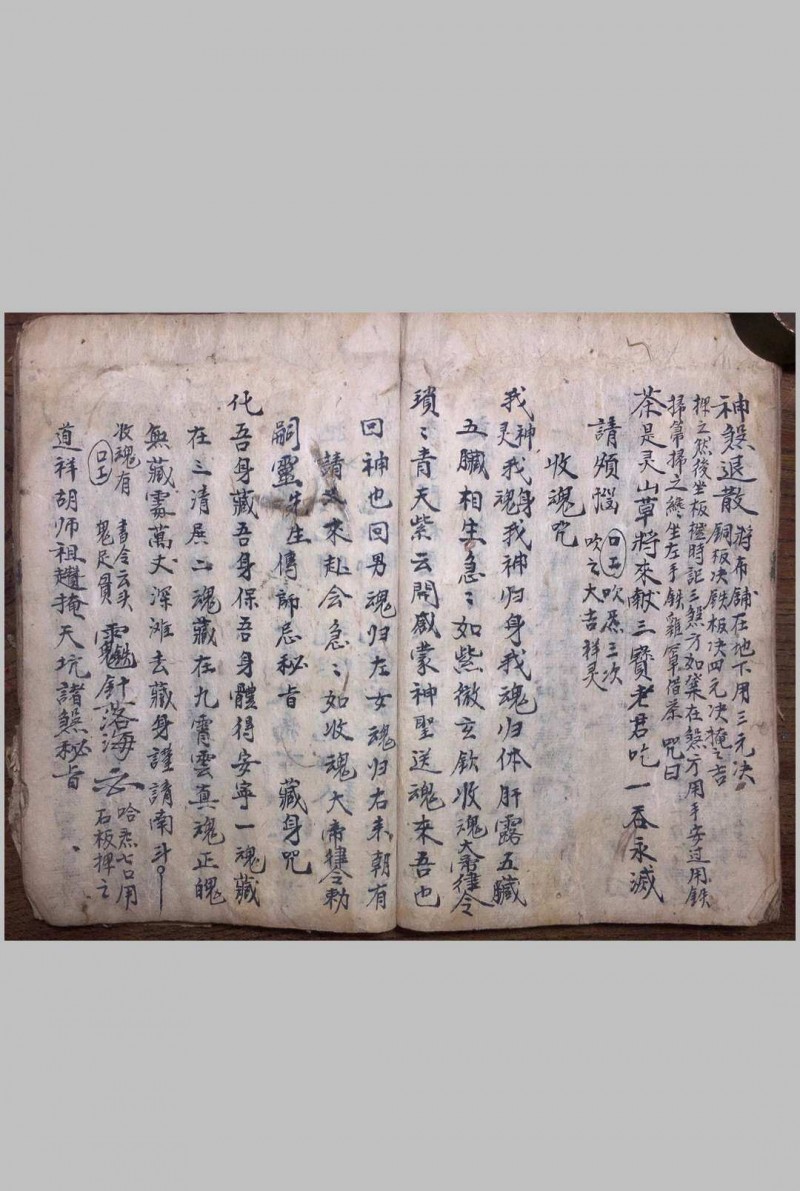 神煞退散 將布舖在地下用三元决
銅板决铁板决四元决掩之吉
押之然後坐板摇時記三煞方如策在煞方用手安过用鉄
掃箒掃之継坐左手鉄雞罩借茶 咒曰
茶是灵山草將來献三寳老君吃一吞永滅
請煩惱 吹炁三次
吹之大吉祥灵
收魂咒
我神我身我神归身我魂归体肝露五臟
灵魂
五臟相生急〻如紫微玄欽收魂大帝律令
瑣〻青天紫云開威蒙神聖送魂來吾也
回神也回男魂归左女魂归右来朝有
請 来赴会急〻如收魂大帝律令勅
嗣靈先生傳師忌秘旨 藏身咒
化吾身藏吾身保吾身體得安寧一魂藏
在三清居二魂藏在九霄雲真魂正魄
無藏處萬丈深滩去藏身謹請南斗
收魂有 書令云头 針落海 哈炁七口用
鬼足貫 石板押之
道祥胡师祖 掩天坑諸煞秘旨